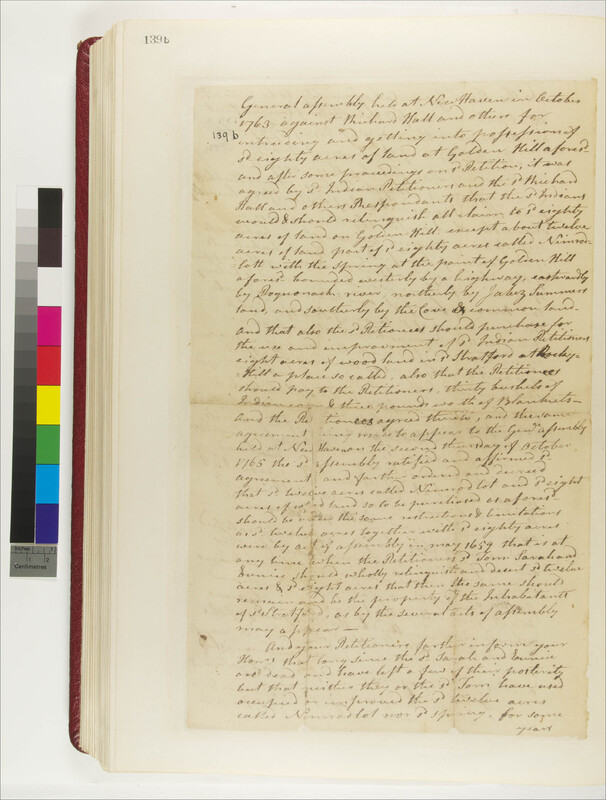 139b
139 b
General assembly held at New Haven in October
1763 against Richard Hall and others for
intrudeing and getting into possession of
sd eighty acres of land at Golden Hill aforesd
and after some proceedings on sd Petition, it was
agreed by sd Indian Petitioners and the sd Richard
Hall and others Respondants that the sd Indians
would & should relinquish all claim to sd eighty
acres of land on Golden Hill except about twelve
acres of land part of sd eighty acres called Nimrod
lott with the Spring at the point of Golden Hill
aforesd bounded westerly by a highway, eastwardly
by Poquonack river, northerly by Jabez Summers
land, and southerly by the Cove & common land
and that also the sd Petionees should purchase for
the use and improvement of sd Indian Petitioners
eight acres of wood land in sd Stratford at Rocky
Hill a place so called, also that the Petitionees
should pay to the Petitioners, thirty bushels of
Indian & three pounds worth of Blankets
And the Pe tionees agreed thereto, and the same
agreement being made to appear to the Genl assembly
held at New Haven on the second thursday of October
1765 the sd assembly ratified and affirmed sd
agreement and farther ordered and decreed
that sd twelve acres called Nimrod lot and sd eight
acres of wood land so to be purchased as aforesd
should be under the same restrictions & limitations
as sd twelve acres together with sd eighty acres
were by act of assembly in may 1659 that is at
any time when the Petitioners sd Tom Sarah and
Eunice should wholly relinquish and desert sd twelve
acres & sd eight acres that then the same should
remain and be the property of the Inhabitants
of sd Stratford, as by the several acts of assembly
may appear —
And your Petitioners farther inform your
Honrs that long since the sd Sarah and Eunice
are dead and have left a few of their posterity
but that neither they or the sd Tom have used
occupied or improved the sd twelve acres
called Nimrod lot nor sd spring, for some
years